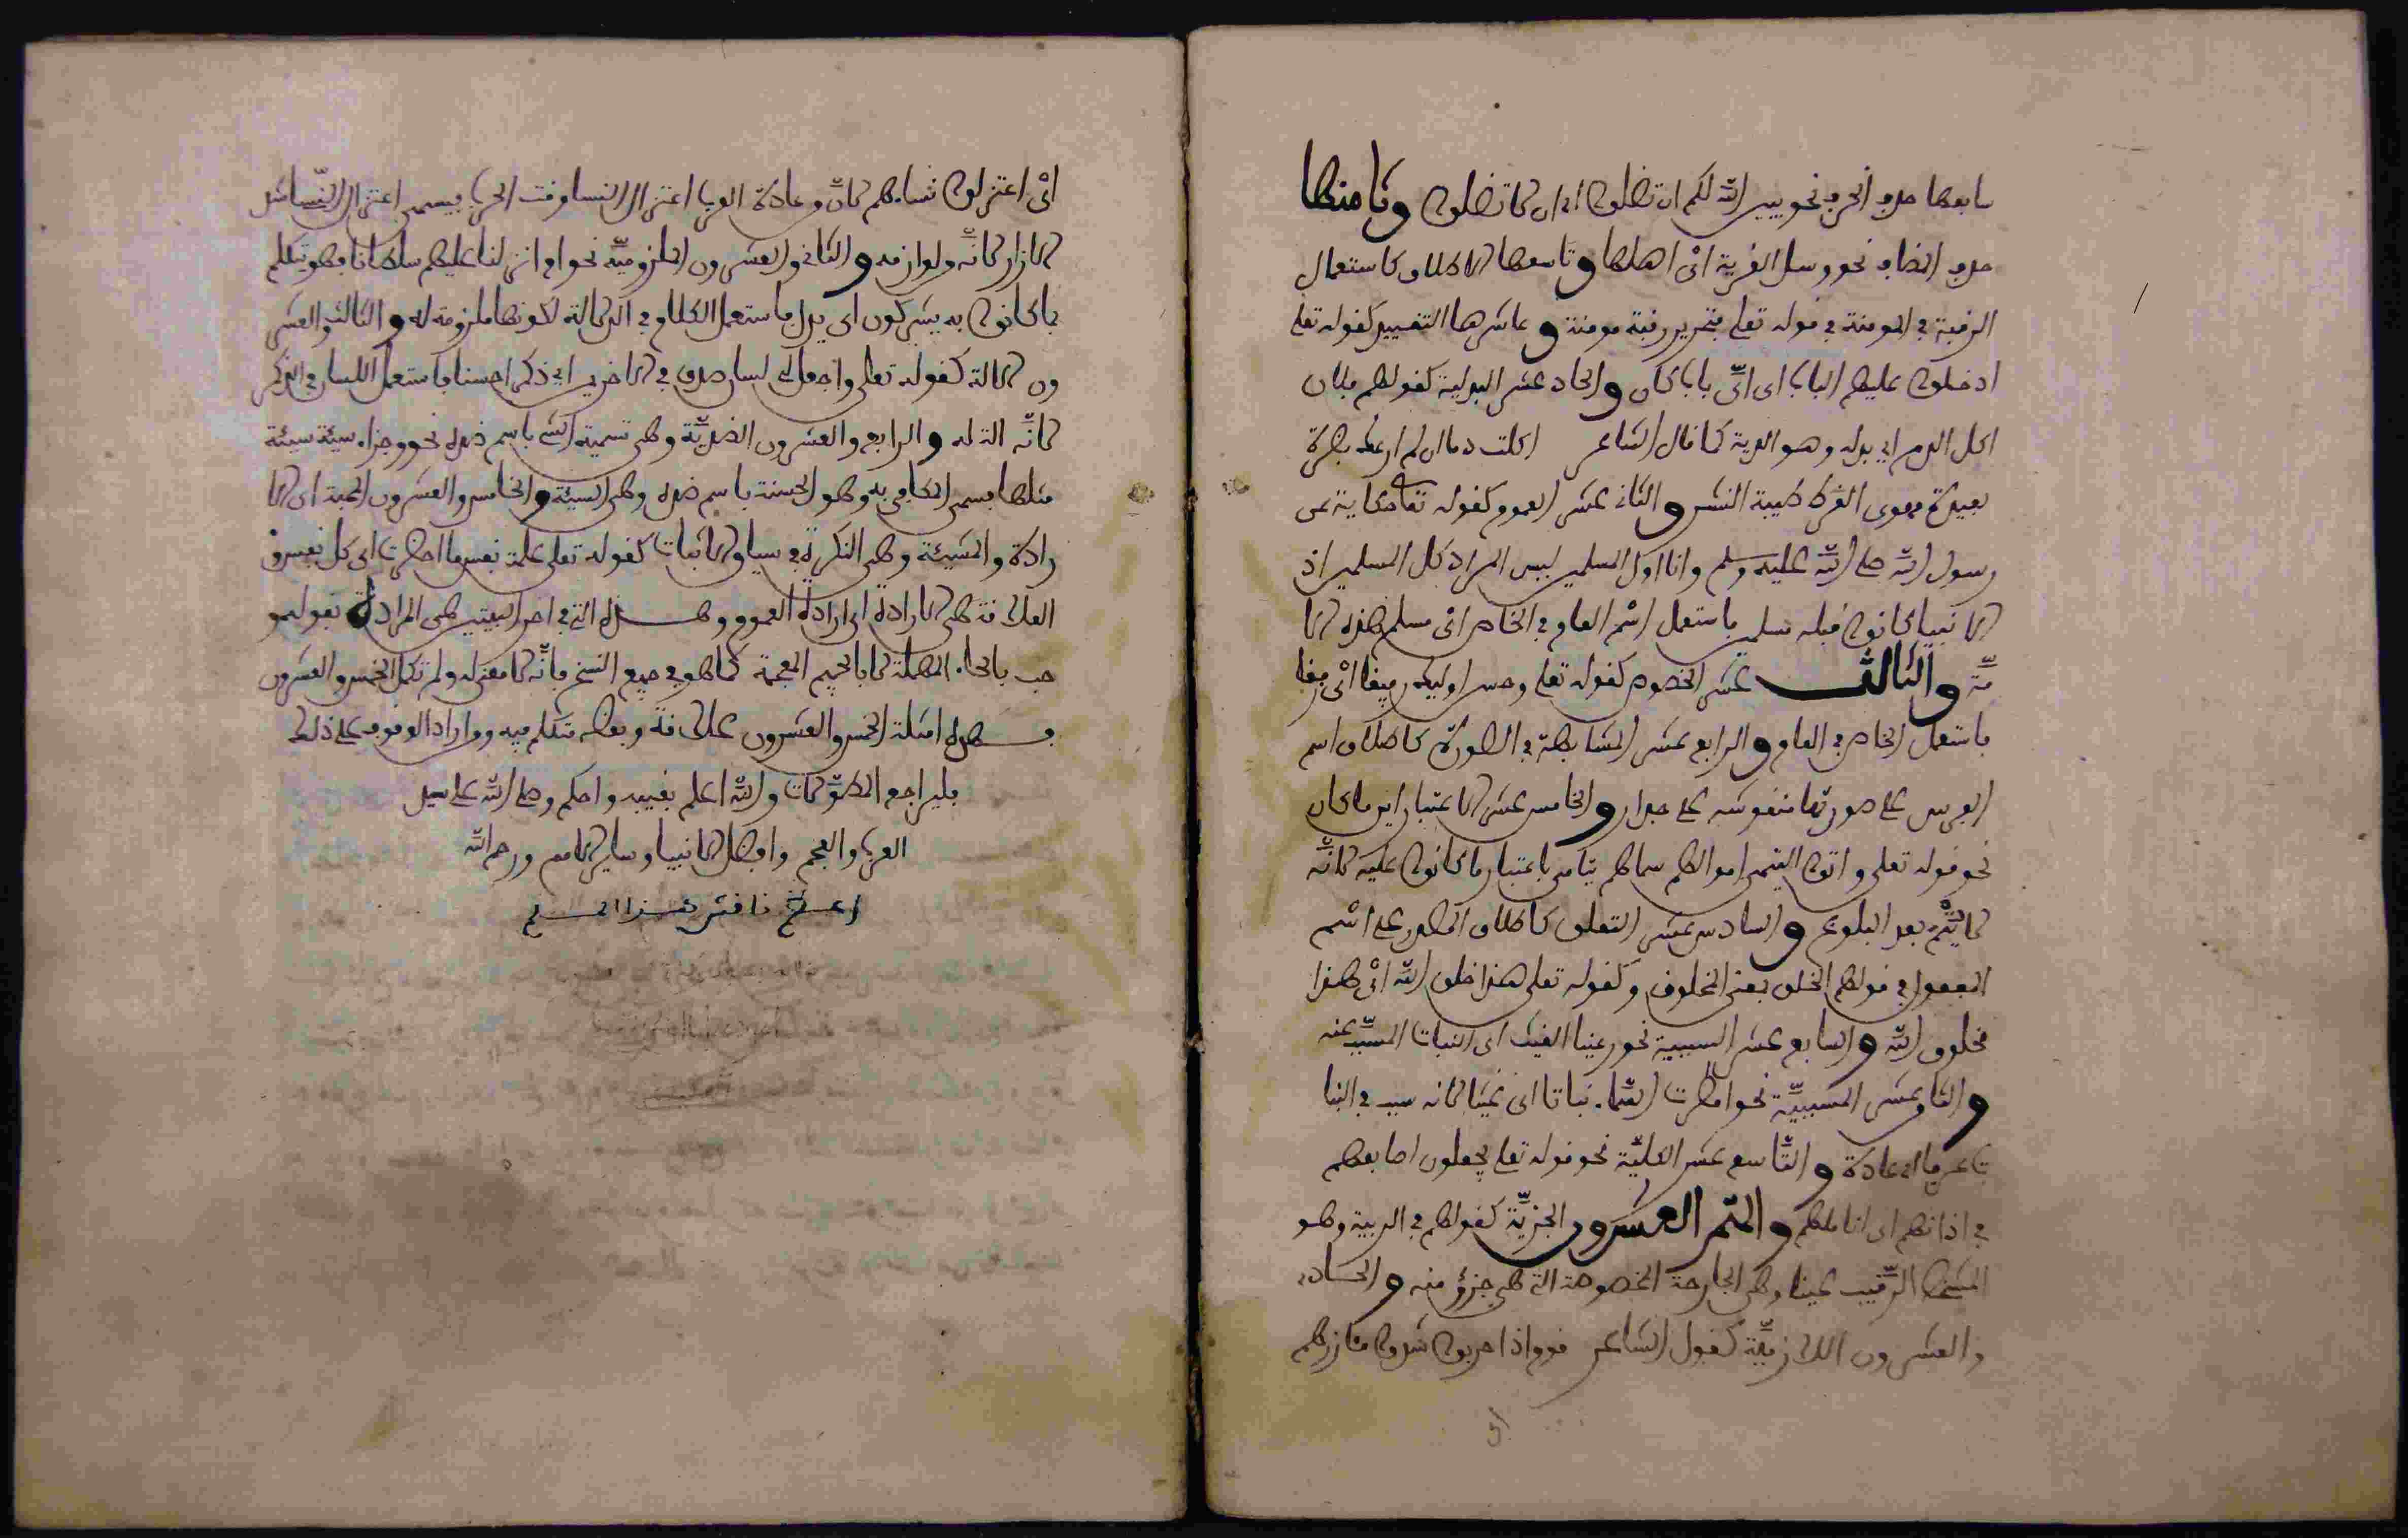 سابعها حذف الحرف نحو يبين الله لكم ان تضلوا اي ان لا تضلوا وثامنها
حذف المضاف نحو وسل القرية اي اهلها وتاسعها الاطلاق كاستعمال
الرقبة في المومنة في قوله تعلى فتحرير رقبة مومنة وعاشرها التقييد كقوله تعلى
ادخلوا عليهم الباب اى اىّ باب كان والحاد عشر البدلية كقولهم فلان
اكل الدم اي بدله وهو الدية كما قال الشاعر اكلت دما ان لم ارعك بضرة
بعيدة مهوى القرط طيبة النشر والثانى عشر العموم كقوله تعلى حكاية عن
رسول الله صلى الله عليه وسلم وانا اول المسلمين ليس المراد كل المسلمين اذ
الانبيا كانوا قبله مسلمين فاستعمل اسم العام في الخاص اى مسلم هذه الا
مّة والثالث عشر الخصوص كقوله تعلى وحسن اوليك رفيقا اى رفقا
فاستعمل الخاص في العام والرابع عشر المشابهة في الصورة كاطلاق اسم
الفرس على صورتها منقوشه على جدار والخامس عشر الاعتبار اين ما كان
نحو قوله تعلى واتوا اليتمى اموالهم سماهم يتامى باعتبار ما كانوا عليه لانّه
لا يتم بعد البلوغ والسادس عشر التعلق كاطلاق المصدر على اسم
المفعول في قولهم الخلق بمعنى المخلوق وكقوله تعلى هذا خلق الله اى هذا
مخلوق الله والسابع عشر السببية نحو رعينا الغيث اى النبات المسبّب عنه
والثامن عشر المسببيّة نحو امطرت السّما نباتا اى غيثا لانه سبب في النبا
ت عرفا اى عادة والتّاسع عشر الكليّة نحو قوله تعلى يجعلون اصابعهم
في اذانهم اى اناملهم والمتم العشرون الجزيّة كقولهم في الربية وهو
الشخص الرّقيب عينا وهى الجارحة المخصوصة التى هى جزؤ منه والحادى
والعشرون اللازميّة كقول الشاعر قوم اذا حربوا شدوا مازرهم
اى
اى اعتزلوا نساءهم لانّ عادة العرب اعتزال النسا وقت الحرب فيسمى اعتزال النّسا شد
الازار لانّه ولوازمه والثانى والعشرون الملزوميّة نحو ام انزلنا عليهم سلطانا فهو يتكلم
بما كانوا به يشركون اى يدل فاستعمل الكلام في الدلالة لكونها ملزومة له والثالث والعشر
ون الالة كقوله تعلى واجعل لى لسان صدق في الاخرين اي ذكرا حسنا فاستعمل اللسان في الذكر
لانّه الة له والرابع والعشرون الضديّة وهى تسمية الشى باسم ضده نحو وجزاء سيئة سيئة
مثلها فسمى المكافى به وهو الحسنة باسم ضده وهى السيئة والخامس والعشرون المحبة اى الا
رادة والمشيئة وهى النكرة في سياق الاثبات كقوله تعلى علمت نفس ما احضرت اى كل نفس و
العلاقة هى الارادة اى ارادة العموم وهذه التى في اخر البيتين هى المرادة بقوله
حب بالحاء المهملة لا بالجيم المعجمة كما هو في جميع النسخ فانّه لا معنى له ولم تكمل الخمس والعشرون
فهذه امثلة الخمس والعشرون علاقة وبعضه متكلم فيه ومن اراد الوقوف على ذلك
فليراجع المطوّلات والله اعلم بغيبه واحكم وصلى الله على سيد
العرب والعجم وافضل الانبيا وساير الامم ورحم الله